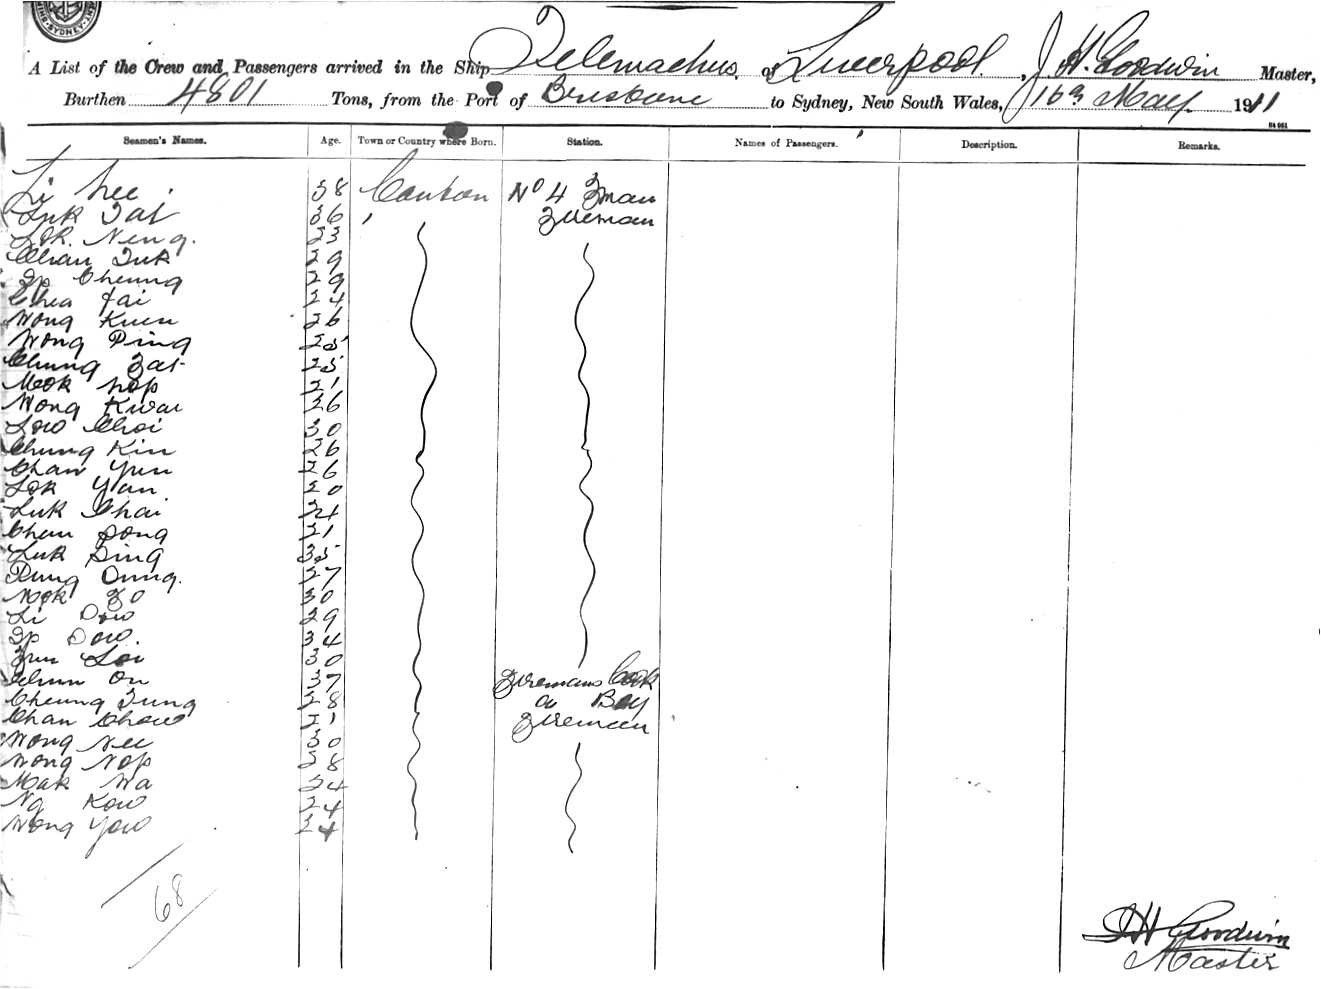 SYDNEY
A List of the Crew and Passengers arrived in the Ship Telemachus. of Liverpool, J. H. Goodwin Master,
Burthen 4801 Tons, from the Port of Brisbane to Sydney, New South Wales, 16 May 1911
Seamen's Names. Age. Town or Country where Born. Station. Names of Passengers. Description. Remarks.
Li 38 Canton No 4 Fman
Luk Tat 36 " Fireman
Lok Neng. 23
Chan Tuk 29
Ip Cheung 29
Chea Fai 24
Wong Kuen 26
Wong Ping 25
Chung Fat 25
Mok Hop 21
Wong Kwai 26
Low Choi 30
Chung Kin 26
Chan Yuen 26
Lok Yan 20
Luk Chai 24
Chan Song 21
Luk Sing 35
Pung Dung. 27
Mok Fo 30
Li Dow 29
Ip Dow. 34
Fun Loi 30
Chun On 37 Firemans Cook
Cheung Fung 28 a Boy
Chan Chow 21 Fireman
Wong Nee 30
Wong Nop 28
Mak Wa 24
Ng Kow 24
Wong Yow 24
68
J H Goodwin
Master